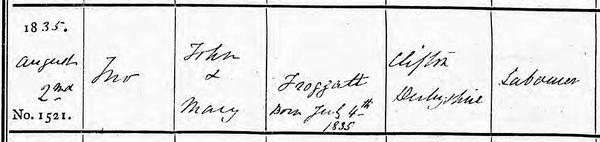 1835.
August
2nd
No. 1521.
Jno
John
&
Mary
Froggatt
Born July 4th
1835
Clifton
Derbyshire
Labourer